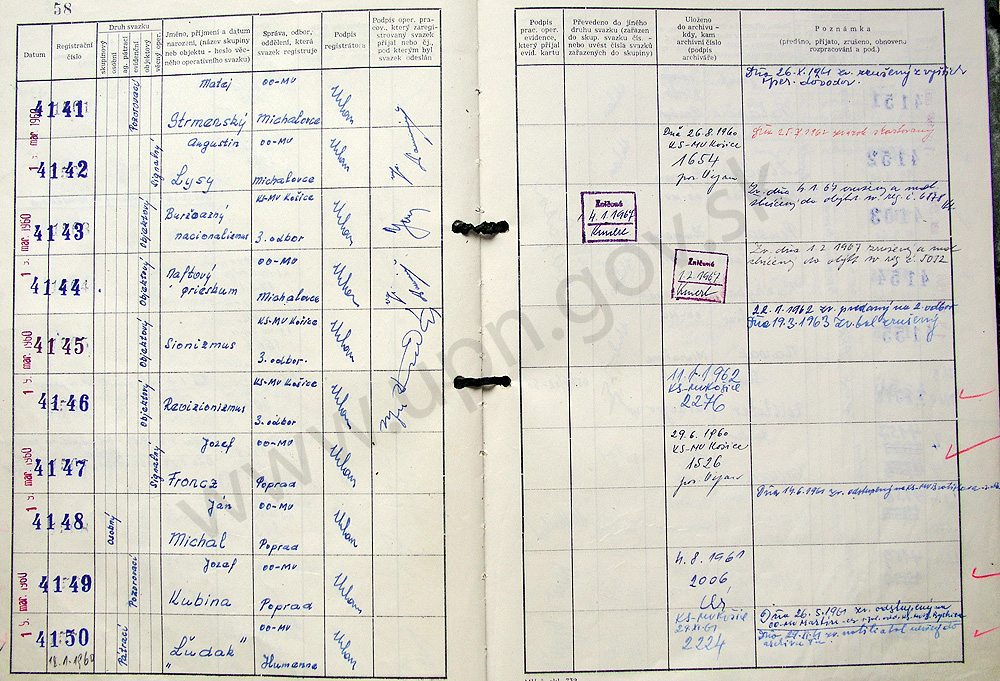 58
Datum
Registrační
číslo
Druh svazku
skupinový
osobní
ag. pátrací
evidenční
objektový
věcný oper.
Jméno, příjmení a datum
narození, (název skupiny
neb objektu - heslo věc-
ného operativního svazku)
Správa, odbor,
oddělení, která
svazek registruje
Podpis
registrátora
Podpis oper. pra-
cov., který zaregi-
strovaný svazek
přijal nebo čj.,
pod kterým byl
svazek odeslán
1 5. mar. 1960
4141
Pozorovací
Matej
Strmenský
OO-MV
Michalovce
Urban
4142
Signálny
Augustin
Lysy
OO-MV
Michalovce
Urban
1 5. mar. 1960
4143
Objektový
Buržoazný
nacionalizmus
KS-MV Košice
3. odbor
Urban
4144
Objektový
Naftový
prieskum
OO-MV
Michalovce
Urban
1 5. mar. 1960
4145
Objektový
Sionizmus
KS-MV Košice
3. odbor.
Urban
4146
Objektový
Revizionizmus
KS-MV Košice
3. odbor
Urban
1 5. mar. 1960
4147
Signálny
Jozef
Froncz
OO-MV
Poprad
Urban
4148
Osobný
Ján
Michal
OO-MV
Poprad
Urban
1 5. mar. 1960
4149
Pozorovací
Jozef
Kubina
OO-MV
Poprad
Urban
4150
18.1.1960
Pátrací
Ľudák "
"
OO-MV
Humenne
Urban
Podpis
prac. oper.
evidence,
který přijal
evid. kartu
Převedeno do jiného
druhu svazku (zařazen
do skup. svazku čís. -
nebo uvést čísla svazků
zařazených do skupiny)
Uloženo
do archivu -
kdy, kam
archivní číslo
(podpis
archiváře)
Poznámka
(předáno, přijato, zrušeno, obnoveno
rozpracování a pod.)
Dňa 26.X.1961 zv. zrušený z vyšších
oper. dôvodov.
Dňa 26.8.1960
KS-MV Košice
1654
Dňa 25.X.1962 zväzok skartovaný
Zničené
4.1.1967
Zv. dňa 4.1.67 zrušený a mat.
zložený do objkt. zv. reg. č. 6178
Zničené
1.2.1967
Zv. dňa 1.2.1967 zrušený a mat.
zložený do objkt. zv. reg. č. 5012
22.1.1962 zv. predaný na 2. odbor
Dňa 19.3.1963 zv. bol zrušený
11.1.1962
KS-MV Košice
2276
29.6.1960
KS-MV Košice
1526
Dňa 14.6.1961 zv. odstúpený na KS-MV Bratislava
4.8.1961
2006
Dňa 26.5.1961 zv. odstúpený na
OO-MV Martin
KS-MV Košice
29.11.61
2224
www.upn.gov.sk